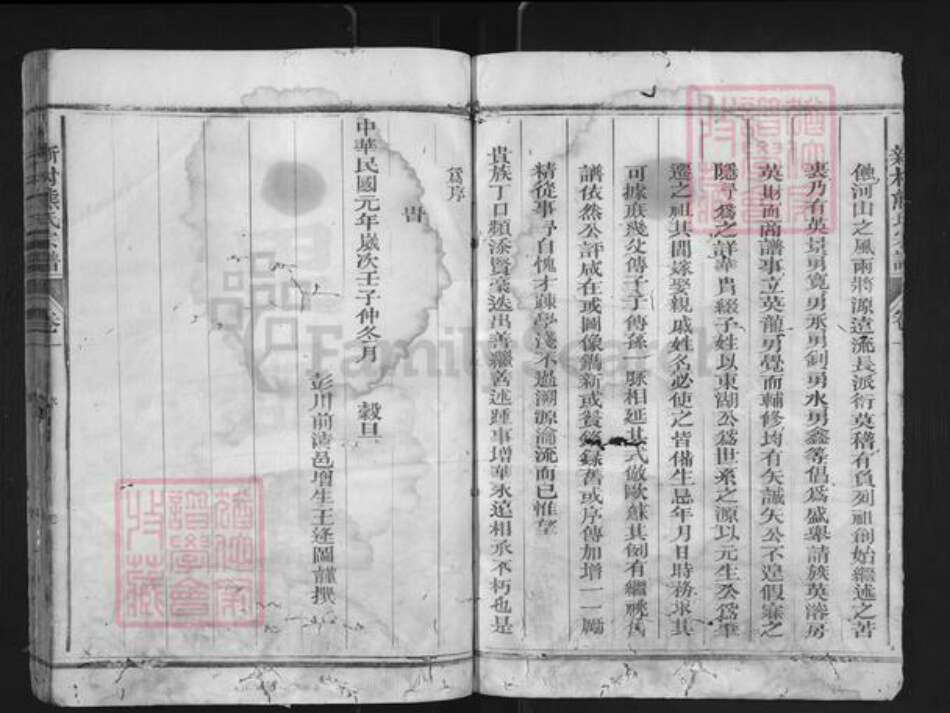 他河山之風雨將源遠流長派衍英稽有負列祖創始繼述之苦
衷乃有英景男寬男丞男釗男永男鑫等倡為盛舉請族英濬房
英財而商譜事立英龍男覺而輔修均有矢誠矢公不遑假寐之
隱尋為之詳華胄綴子姓以東湖公為世系之源以元生公為肇
遷之祖其間嫁娶親戚姓名必使之皆備生忌年月日時務求其
可據庶幾父傳子子傳孫一脈相延其式倣歐蘇其例有繼
譜依然公評咸在或圖像鐫新或錄舊或序傳加增一一勵
精從事予自愧才疎學淺不過溯源瀹流而已惟望
貴族丁口頻添賢裊迭出善繼善述踵事增華永追相承不朽也是
為序
旹
中華民國元年歲次壬子仲冬月 穀旦
彭川前清邑增生王逢圖謹撰
新村熊氏公譜 卷一
FamilySearch